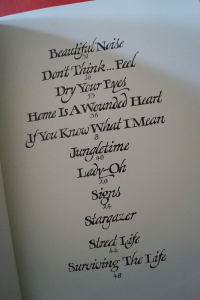 Beautiful Noise
Don't Think...Feel
10
Dry Your Eyes
53
Home Is A Wounded Heart
36
If You Know What I Mean
8
Jungletime
40
Lady-Oh
20
Signs
24
Stargazer
Street Life
44
Surviving The Life
48